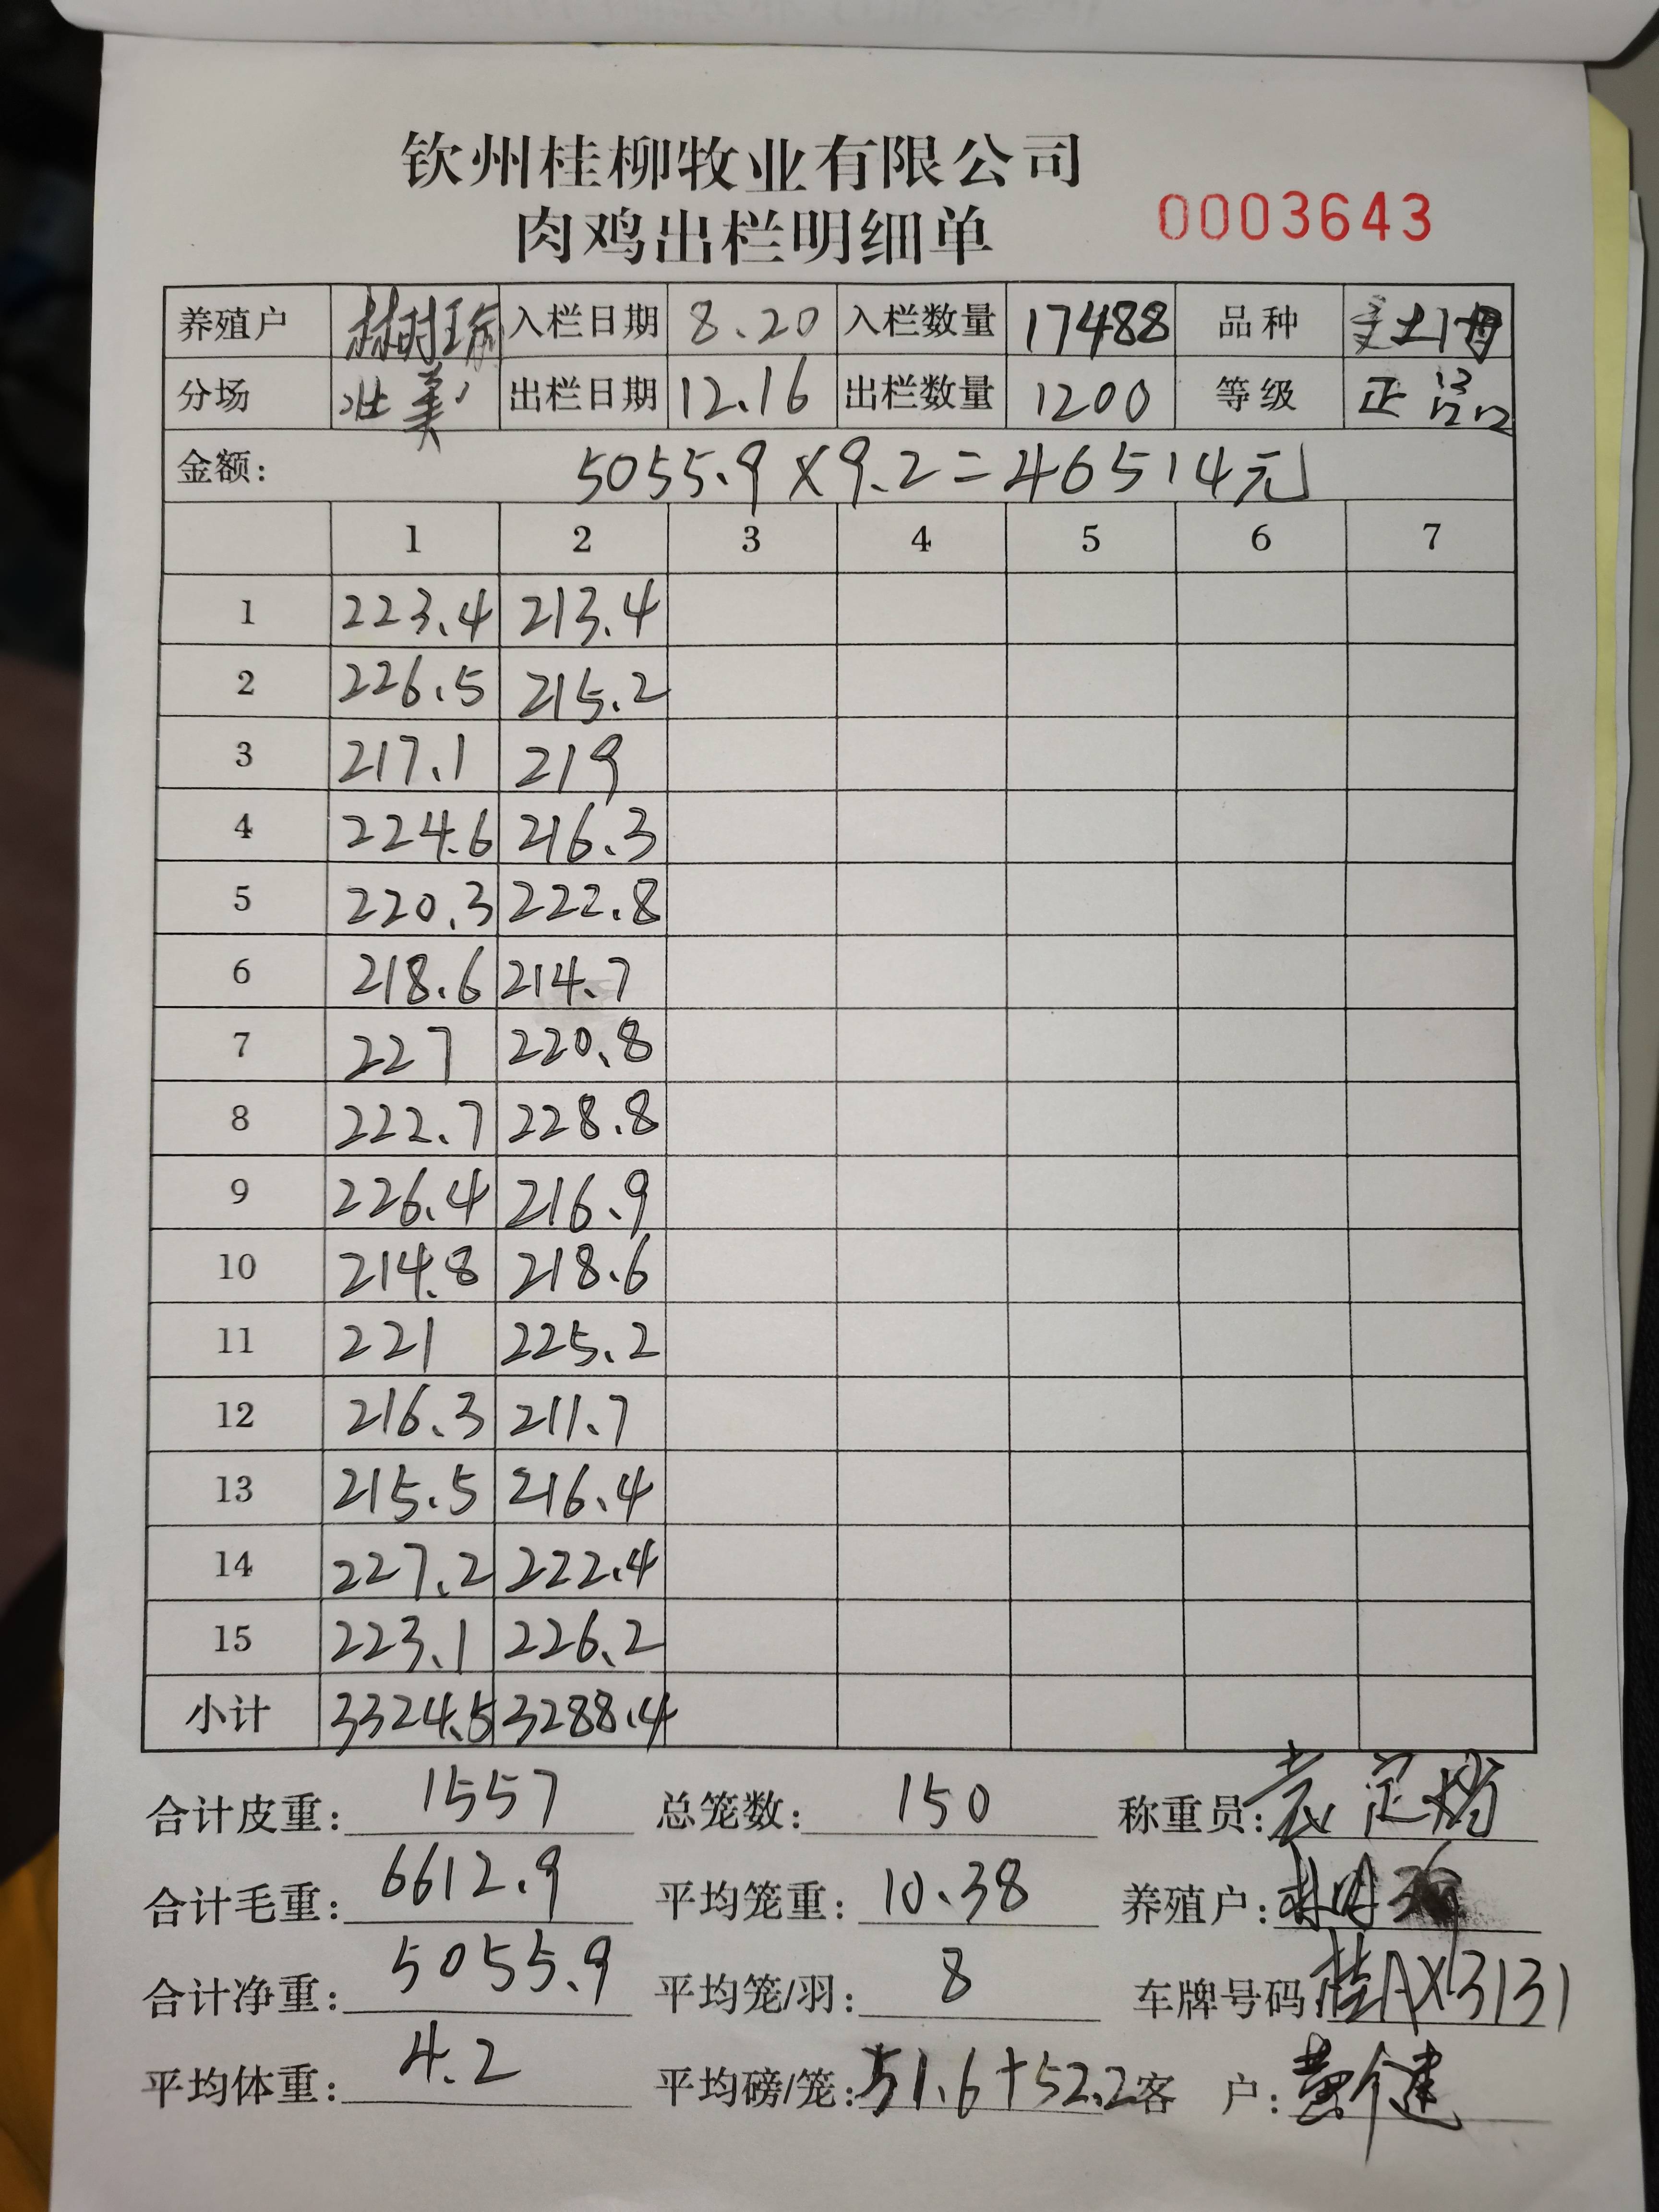 钦州桂柳牧业有限公司
肉鸡出栏明细单 0003643
养殖户 入栏日期 8.20 入栏数量 17488 品种
分场 出栏日期 12.16 出栏数量 1200 等级 正品
金额: 5055.9×9.2=46514元
1 2 3 4 5 6 7
1 223.4 213.4
2 226.5 215.2
3 217.1 219
4 224.6 216.3
5 220.3 222.8
6 218.6 214.7
7 227 220.8
8 222.7 228.8
9 226.4 216.9
10 214.8 218.6
11 221 225.2
12 216.3 211.7
13 215.5 216.4
14 227.2 222.4
15 223.1 226.2
小计 3324.5 3288.4
合计皮重: 1557 总笼数: 150 称重员:
合计毛重: 6612.9 平均笼重: 10.38 养殖户:
合计净重: 5055.9 平均笼/羽: 8 车牌号码: 桂AX3131
平均体重: 4.2 平均磅/笼: 51.6+52.2 客 户: 黄健